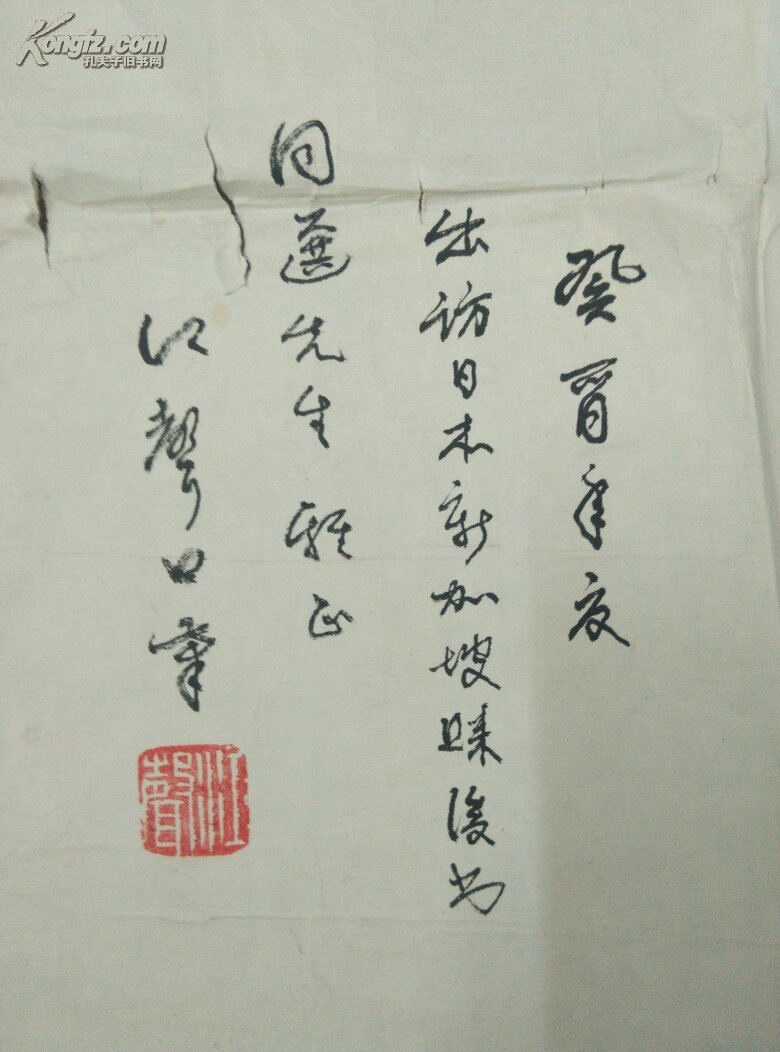 Kongfz.com
孔夫子旧书网
癸酉年夏
出访日本新加坡歸後书
同 先生雅正
江聲口筆
江聲